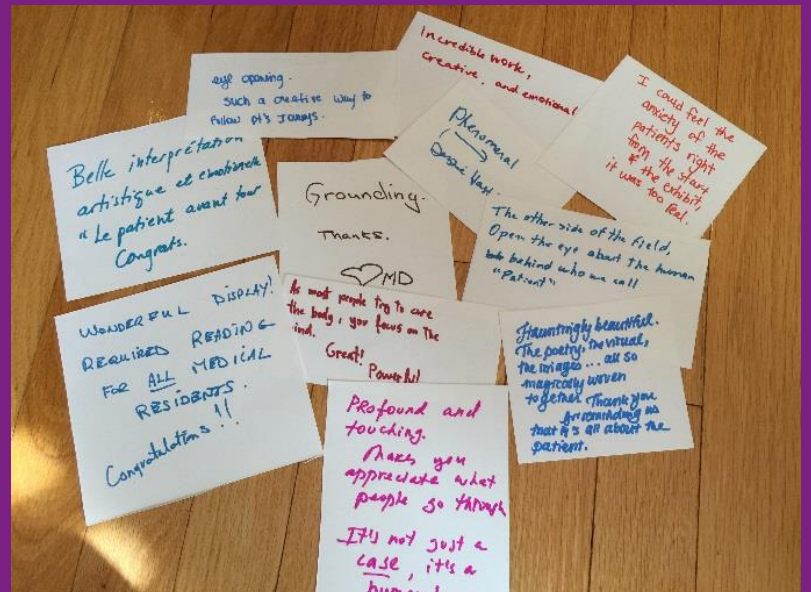 eye opening.
such a creative way to
follow pt's
Incredible work,
creative, and emotional
I could feel the
anxiety of the
patients right
from the start
of the exhibit,
it was too real.
Phenomenal
Belle interprétation
artistique et émotionelle
"Le patient avant tout
Congrats.
Grounding.
Thanks.
♡MD
The other side of the field,
Open the eye about the human
behind who we call
"Patient"
WONDERFUL DISPLAY!
REQUIRED READING
FOR ALL MEDICAL
RESIDENTS.
Congratulations!!
As most people try to cure
the body, you focus on the
ind.
Great!
Powerful!
Hauntingly beautiful.
The poetry, the visual,
the images... all so
magically woven
together. Thank you
for reminding us
that it's all about the
patient.
Profound and
touching.
Makes you
appreciate what
people go through
It's not just a
case, it's a